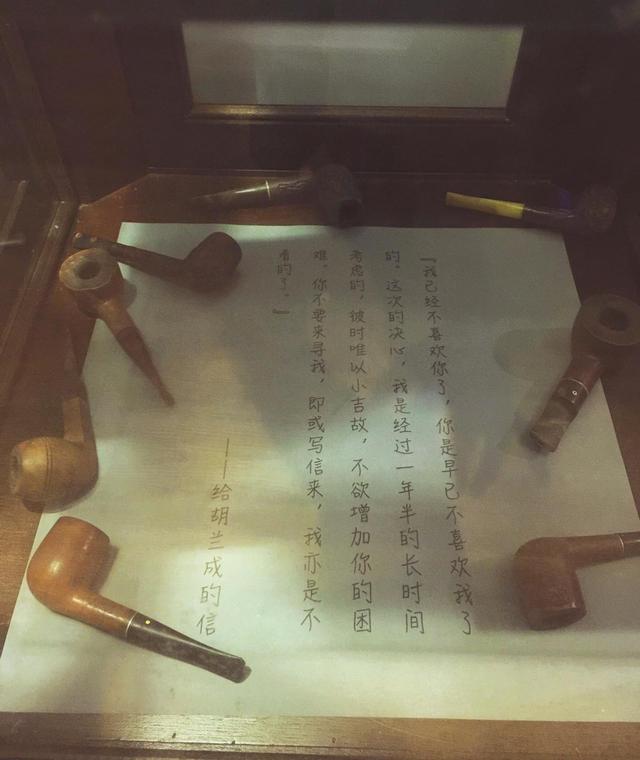 『我已经不喜欢你了，你是早已不喜欢我了
的。这次的决心，我是经过一年半的长时间
考虑的，彼时唯以小吉故，不欲增加你的困
难。你不要来寻我，即或写信来，我亦是不
看的了。』
——给胡兰成的信